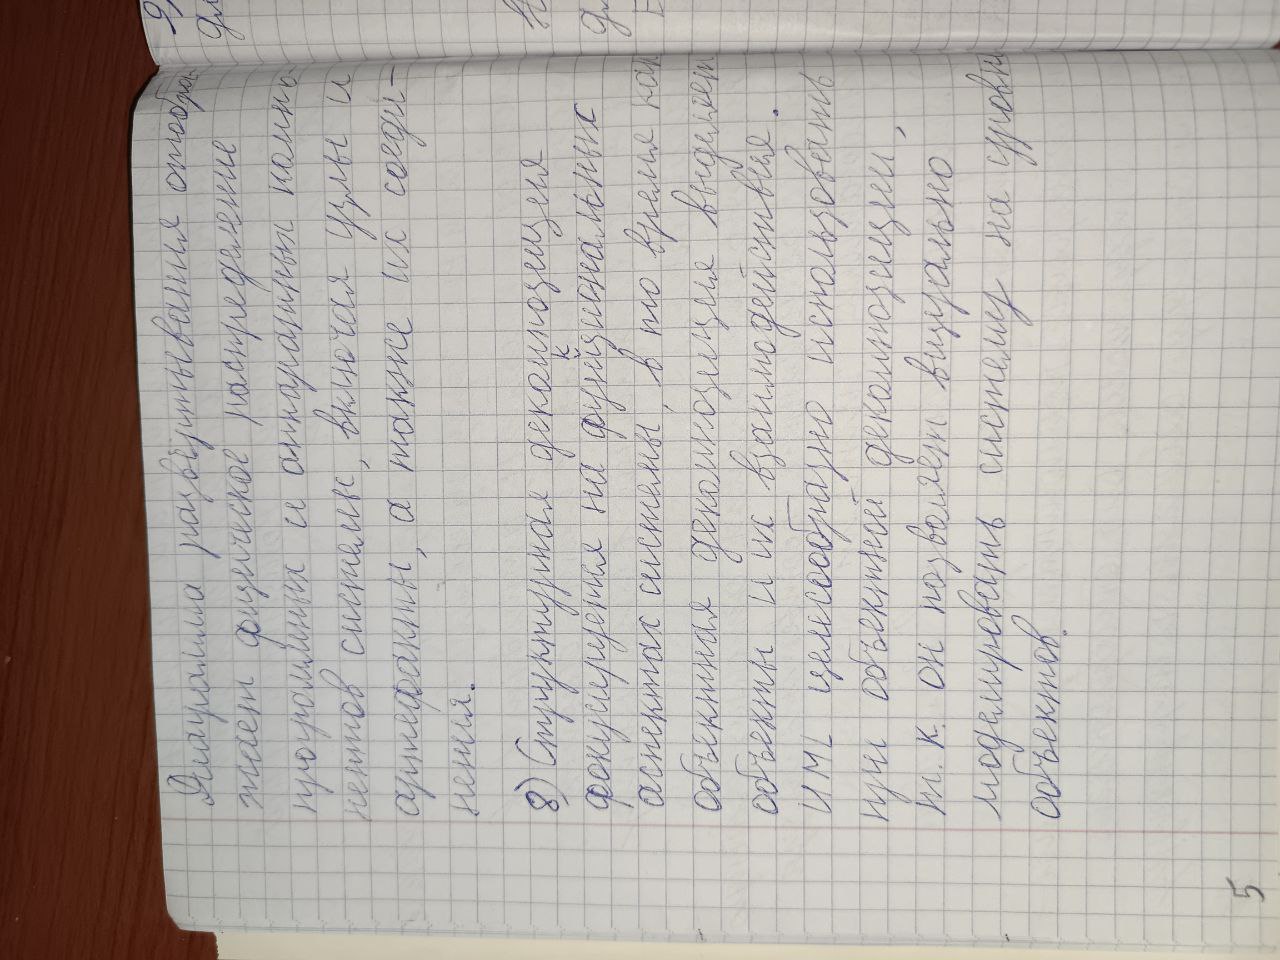 Диаграмма развёртывания отобра-
жает физическое распределение
программных и аппаратных компо-
нентов системы, включая узлы и
артефакты, а также их соеди-
нения.
8) Структурная декомпозиция
фокусируется на функциональных
аспектах системы, в то время как
объектная декомпозиция выделяет
объекты и их взаимодействия.
UML целесообразно использовать
при объектной декомпозиции,
т. к. он позволяет визуально
моделировать систему на уровне
объектов.
5